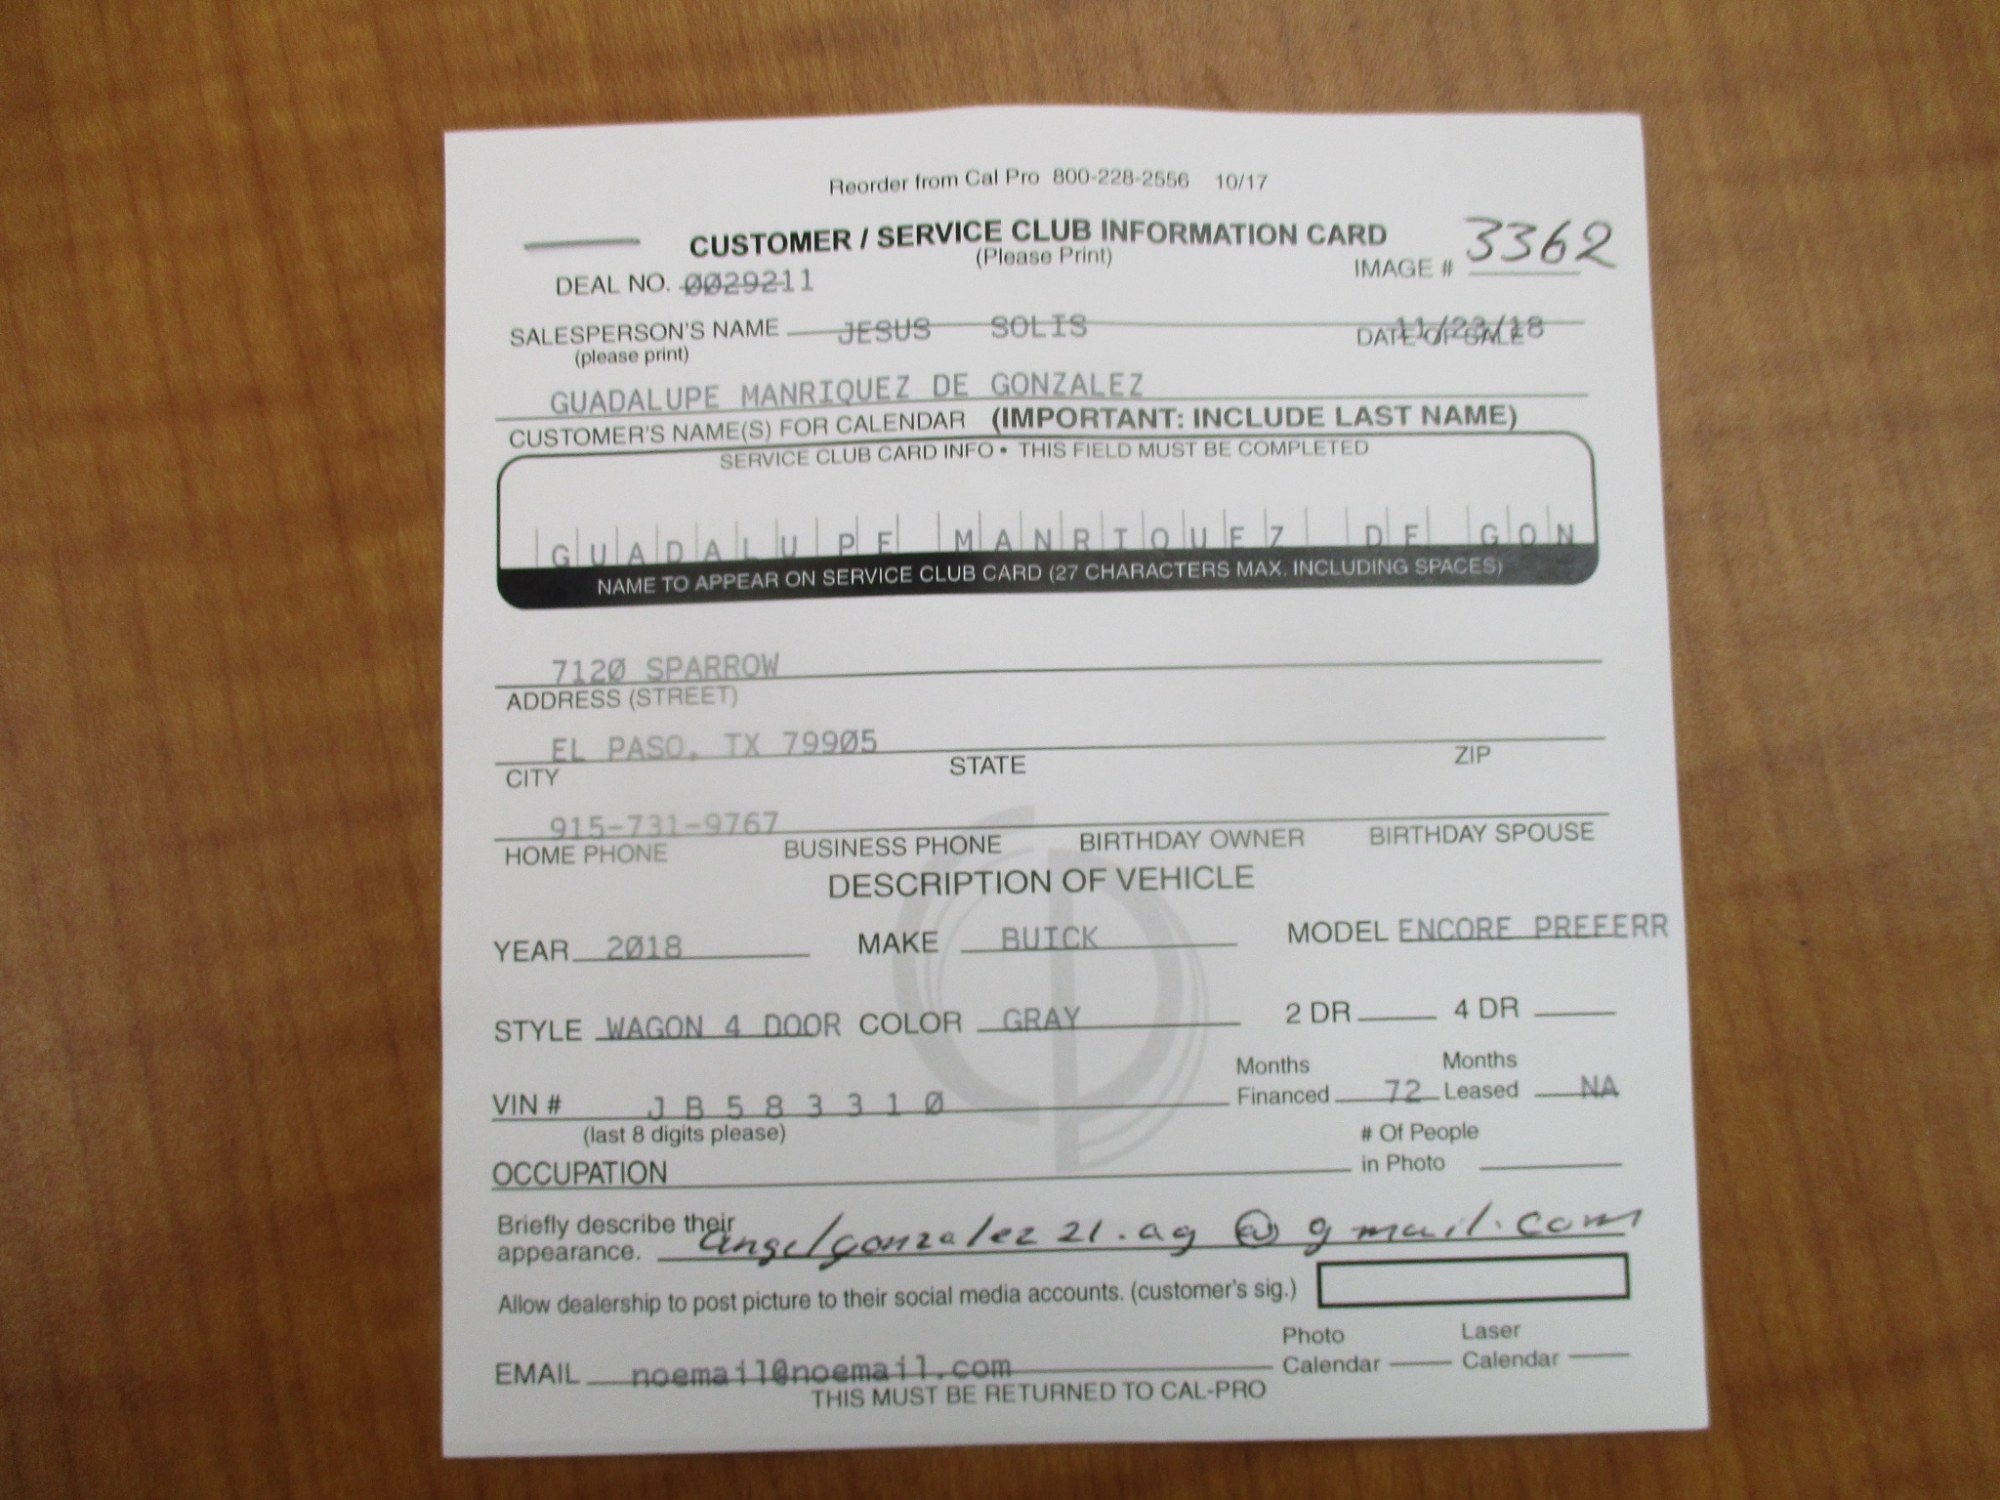 Reorder from Cal Pro 800-228-2556 10/17
CUSTOMER / SERVICE CLUB INFORMATION CARD
(Please Print)
IMAGE # 3362
DEAL NO. 0029211
SALESPERSON'S NAME JESUS SOLIS DATE OF SALE 11/23/18
(please print)
GUADALUPE MANRIQUEZ DE GONZALEZ
CUSTOMER'S NAME(S) FOR CALENDAR (IMPORTANT: INCLUDE LAST NAME)
SERVICE CLUB CARD INFO • THIS FIELD MUST BE COMPLETED
GUADALUPE MANRIQUEZ DE GON
NAME TO APPEAR ON SERVICE CLUB CARD (27 CHARACTERS MAX. INCLUDING SPACES)
7120 SPARROW
ADDRESS (STREET)
EL PASO, TX 79905
CITY STATE ZIP
915-731-9767
HOME PHONE BUSINESS PHONE BIRTHDAY OWNER BIRTHDAY SPOUSE
DESCRIPTION OF VEHICLE
YEAR 2018 MAKE BUICK MODEL ENCORE PREFERR
STYLE WAGON 4 DOOR COLOR GRAY 2 DR 4 DR
Months Months
VIN # JB583310 Financed 72 Leased NA
(last 8 digits please) # Of People
OCCUPATION in Photo
Briefly describe their
appearance. angelgonzalez21.ag@gmail.com
Allow dealership to post picture to their social media accounts. (customer's sig.)
Photo Laser
EMAIL noemail@noemail.com Calendar Calendar
THIS MUST BE RETURNED TO CAL-PRO